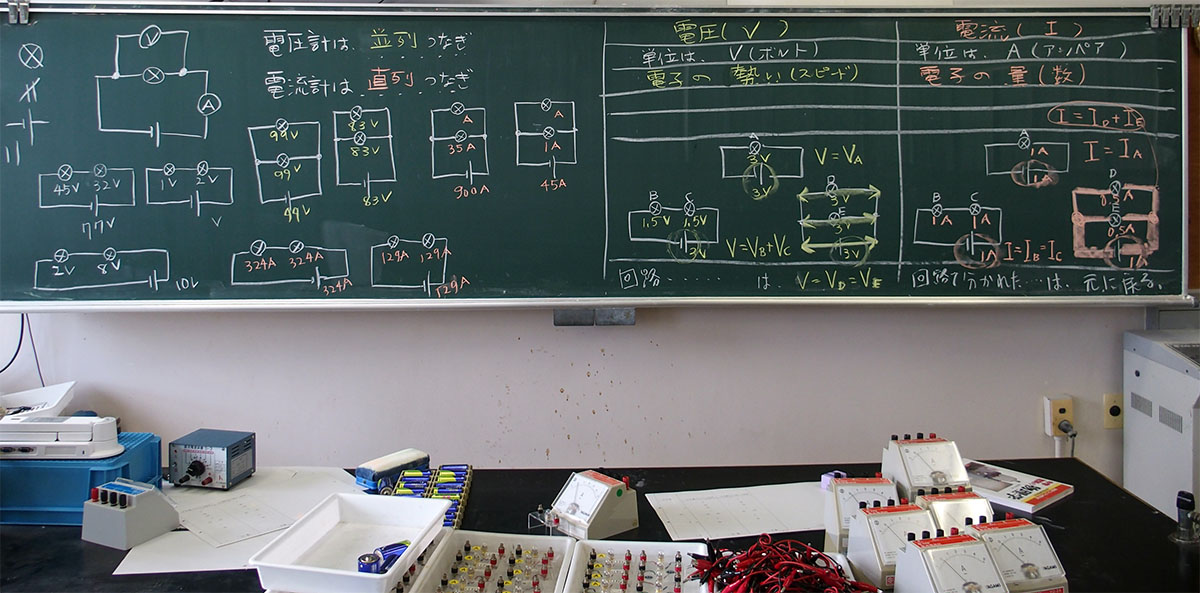 電圧計は、並列つなぎ
電流計は直列つなぎ
V
A
45V 32V
77V
1V 2V
V
99V
99V
99V
83V
83V
83V
A
35A
900A
A
1A
45A
2V 8V
10V
324A 324A
324A
129A 129A
129A
電圧(V)
単位は、V(ボルト)
電子の勢い(スピード)
A
3V
3V
V=VA
B C
1.5V 1.5V
3V
V=VB+VC
D
3V
E
3V
3V
回路‥‥‥は、V=VD=VE
電流(I)
単位は、A(アンペア)
電子の量(数)
I=ID+IE
A
1A
1A
I=IA
B C
1A 1A
1A
I=IB=IC
D
0.5A
E
0.5A
1A
回路で分かれた‥‥は、元に戻る。